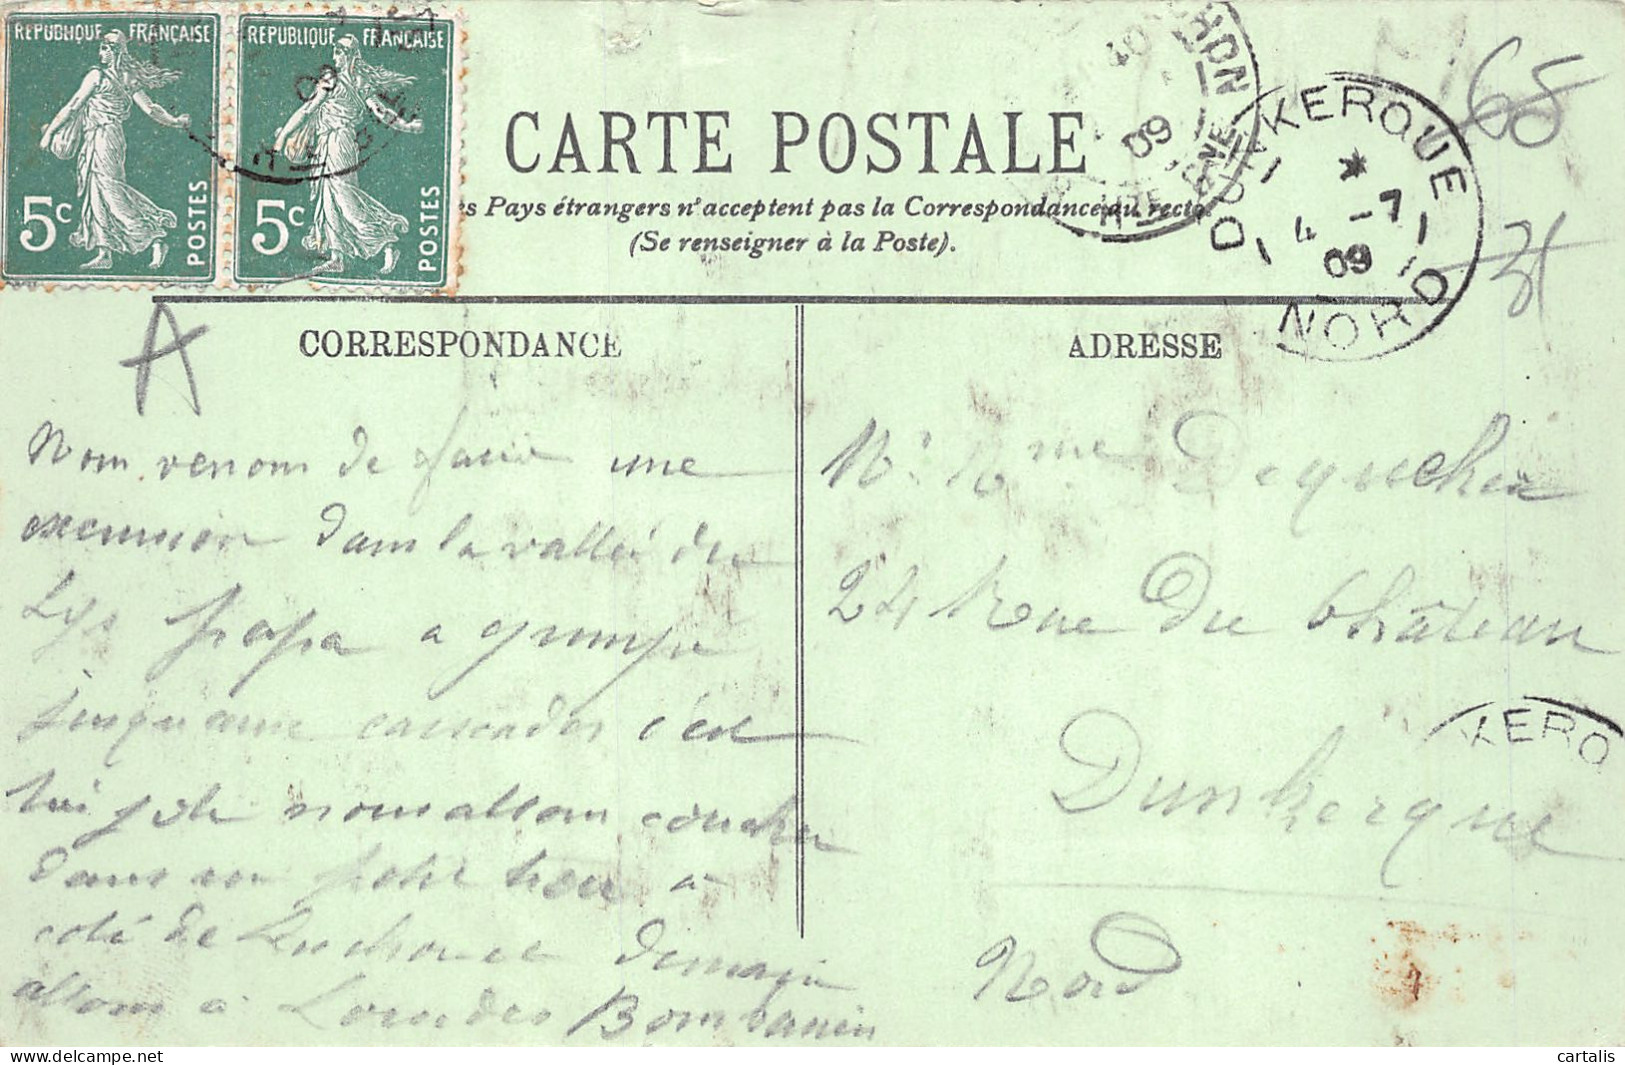 REPUBLIQUE FRANÇAISE
5c
POSTES
REPUBLIQUE FRANÇAISE
5c
POSTES
CARTE POSTALE
es Pays étrangers n'acceptent pas la Correspondance au recto.
(Se renseigner à la Poste).
DUNKERQUE
4 -7
09
NORD
09
65
CORRESPONDANCE
ADRESSE
A
Nous venons de faire une
excursion dans la vallée du
Lys papa a grimpé
cascades c'est
très joli nous allons coucher
dans un petit trou a
coté de Luchon et demain
allons à Lourdes Bons
Mr Mme
24 Rue du Château
Dunkerque
Nord
KERQ
cartalis